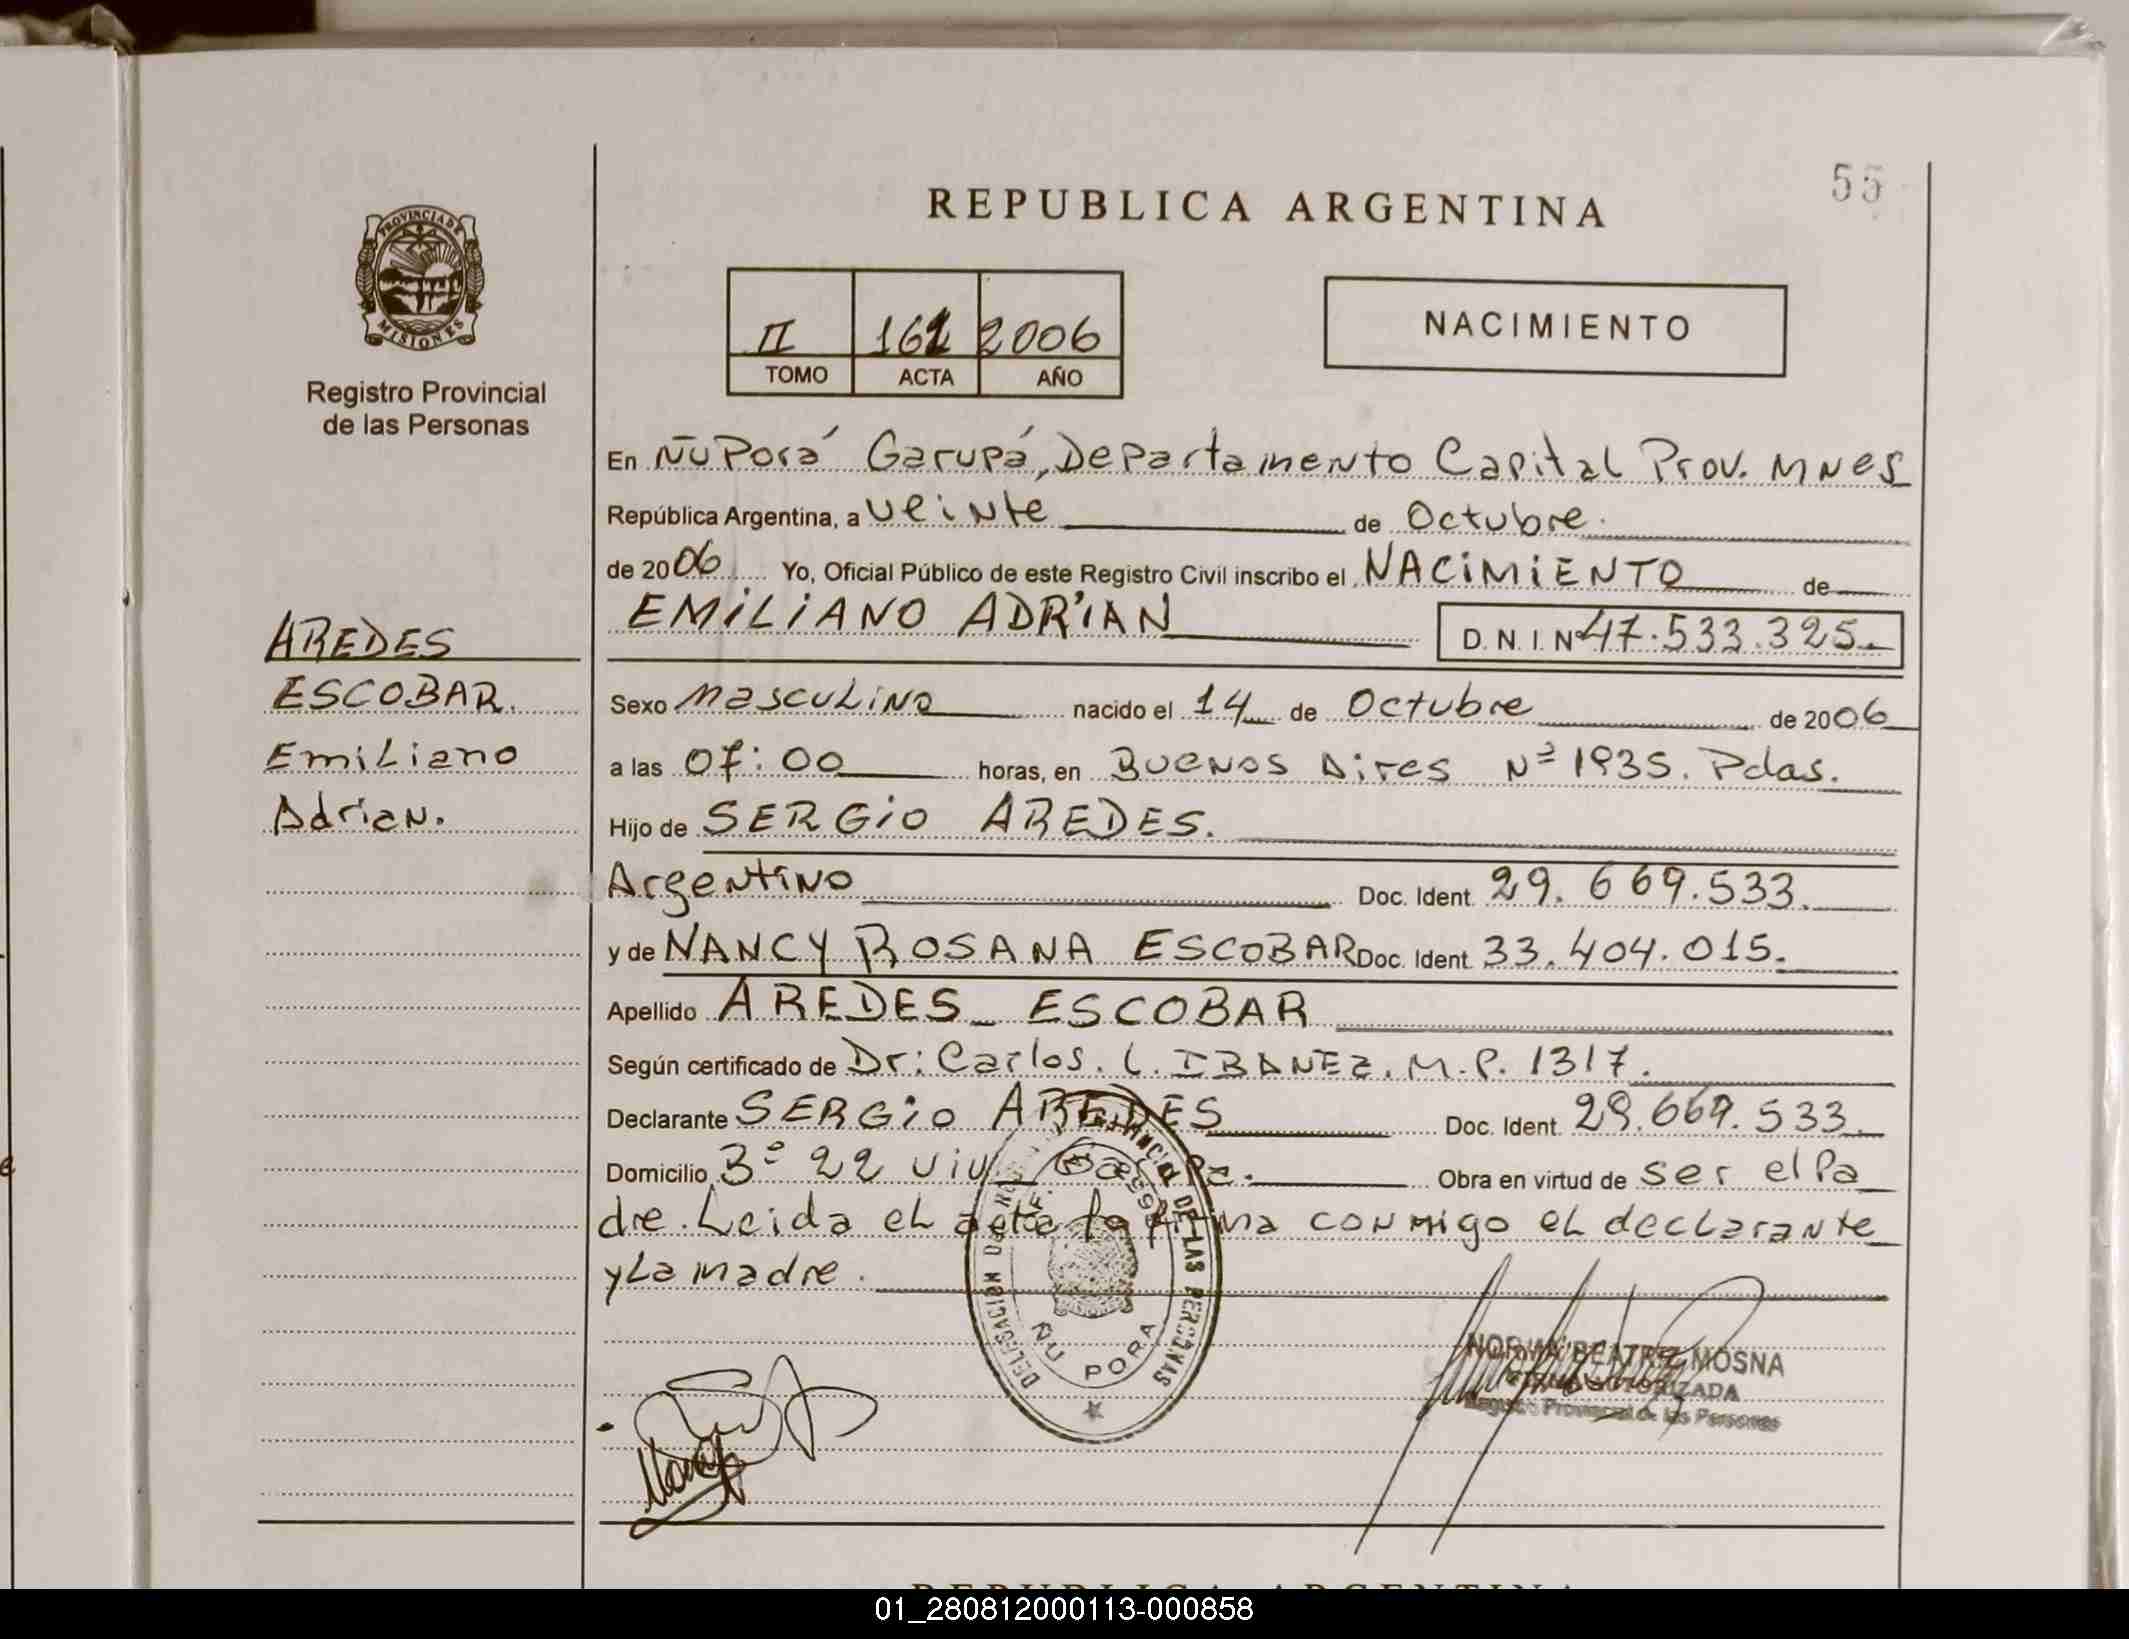 55
REPUBLICA ARGENTINA
PROVINCIA DE
MISIONES
Registro Provincial
de las Personas
II 161 2006
TOMO ACTA AÑO
NACIMIENTO
En Ñu Porá Garupá, Departamento Capital Prov. MNes
República Argentina, a veinte de Octubre.
de 2006 Yo, Oficial Público de este Registro Civil inscribo el NACIMIENTO de
EMILIANO ADRIAN D. N. I. Nº 47.533.325.
AREDES
ESCOBAR.
Emiliano
Adrian.
Sexo masculino nacido el 14 de Octubre de 2006
a las 07:00 horas, en Buenos Aires Nº 1935. Pdas.
Hijo de SERGIO AREDES.
Argentino Doc. Ident. 29.669.533.
y de NANCY ROSANA ESCOBAR Doc. Ident. 33.404.015.
Apellido AREDES ESCOBAR
Según certificado de Dr: Carlos. L. IBANEZ. M.P. 1317.
Declarante SERGIO AREDES Doc. Ident. 29.669.533.
Domicilio 3º 22 viv Obra en virtud de ser el Pa
dre. Leida el acta la firma conmigo el declarante
y la madre.
DELEGACION DE LAS PERSONAS
ÑU PORA
NORMA BEATRIZ MOSNA
FIRMA AUTORIZADA
Registro Provincial de las Personas
REPUBLICA ARGENTINA
01_280812000113-000858